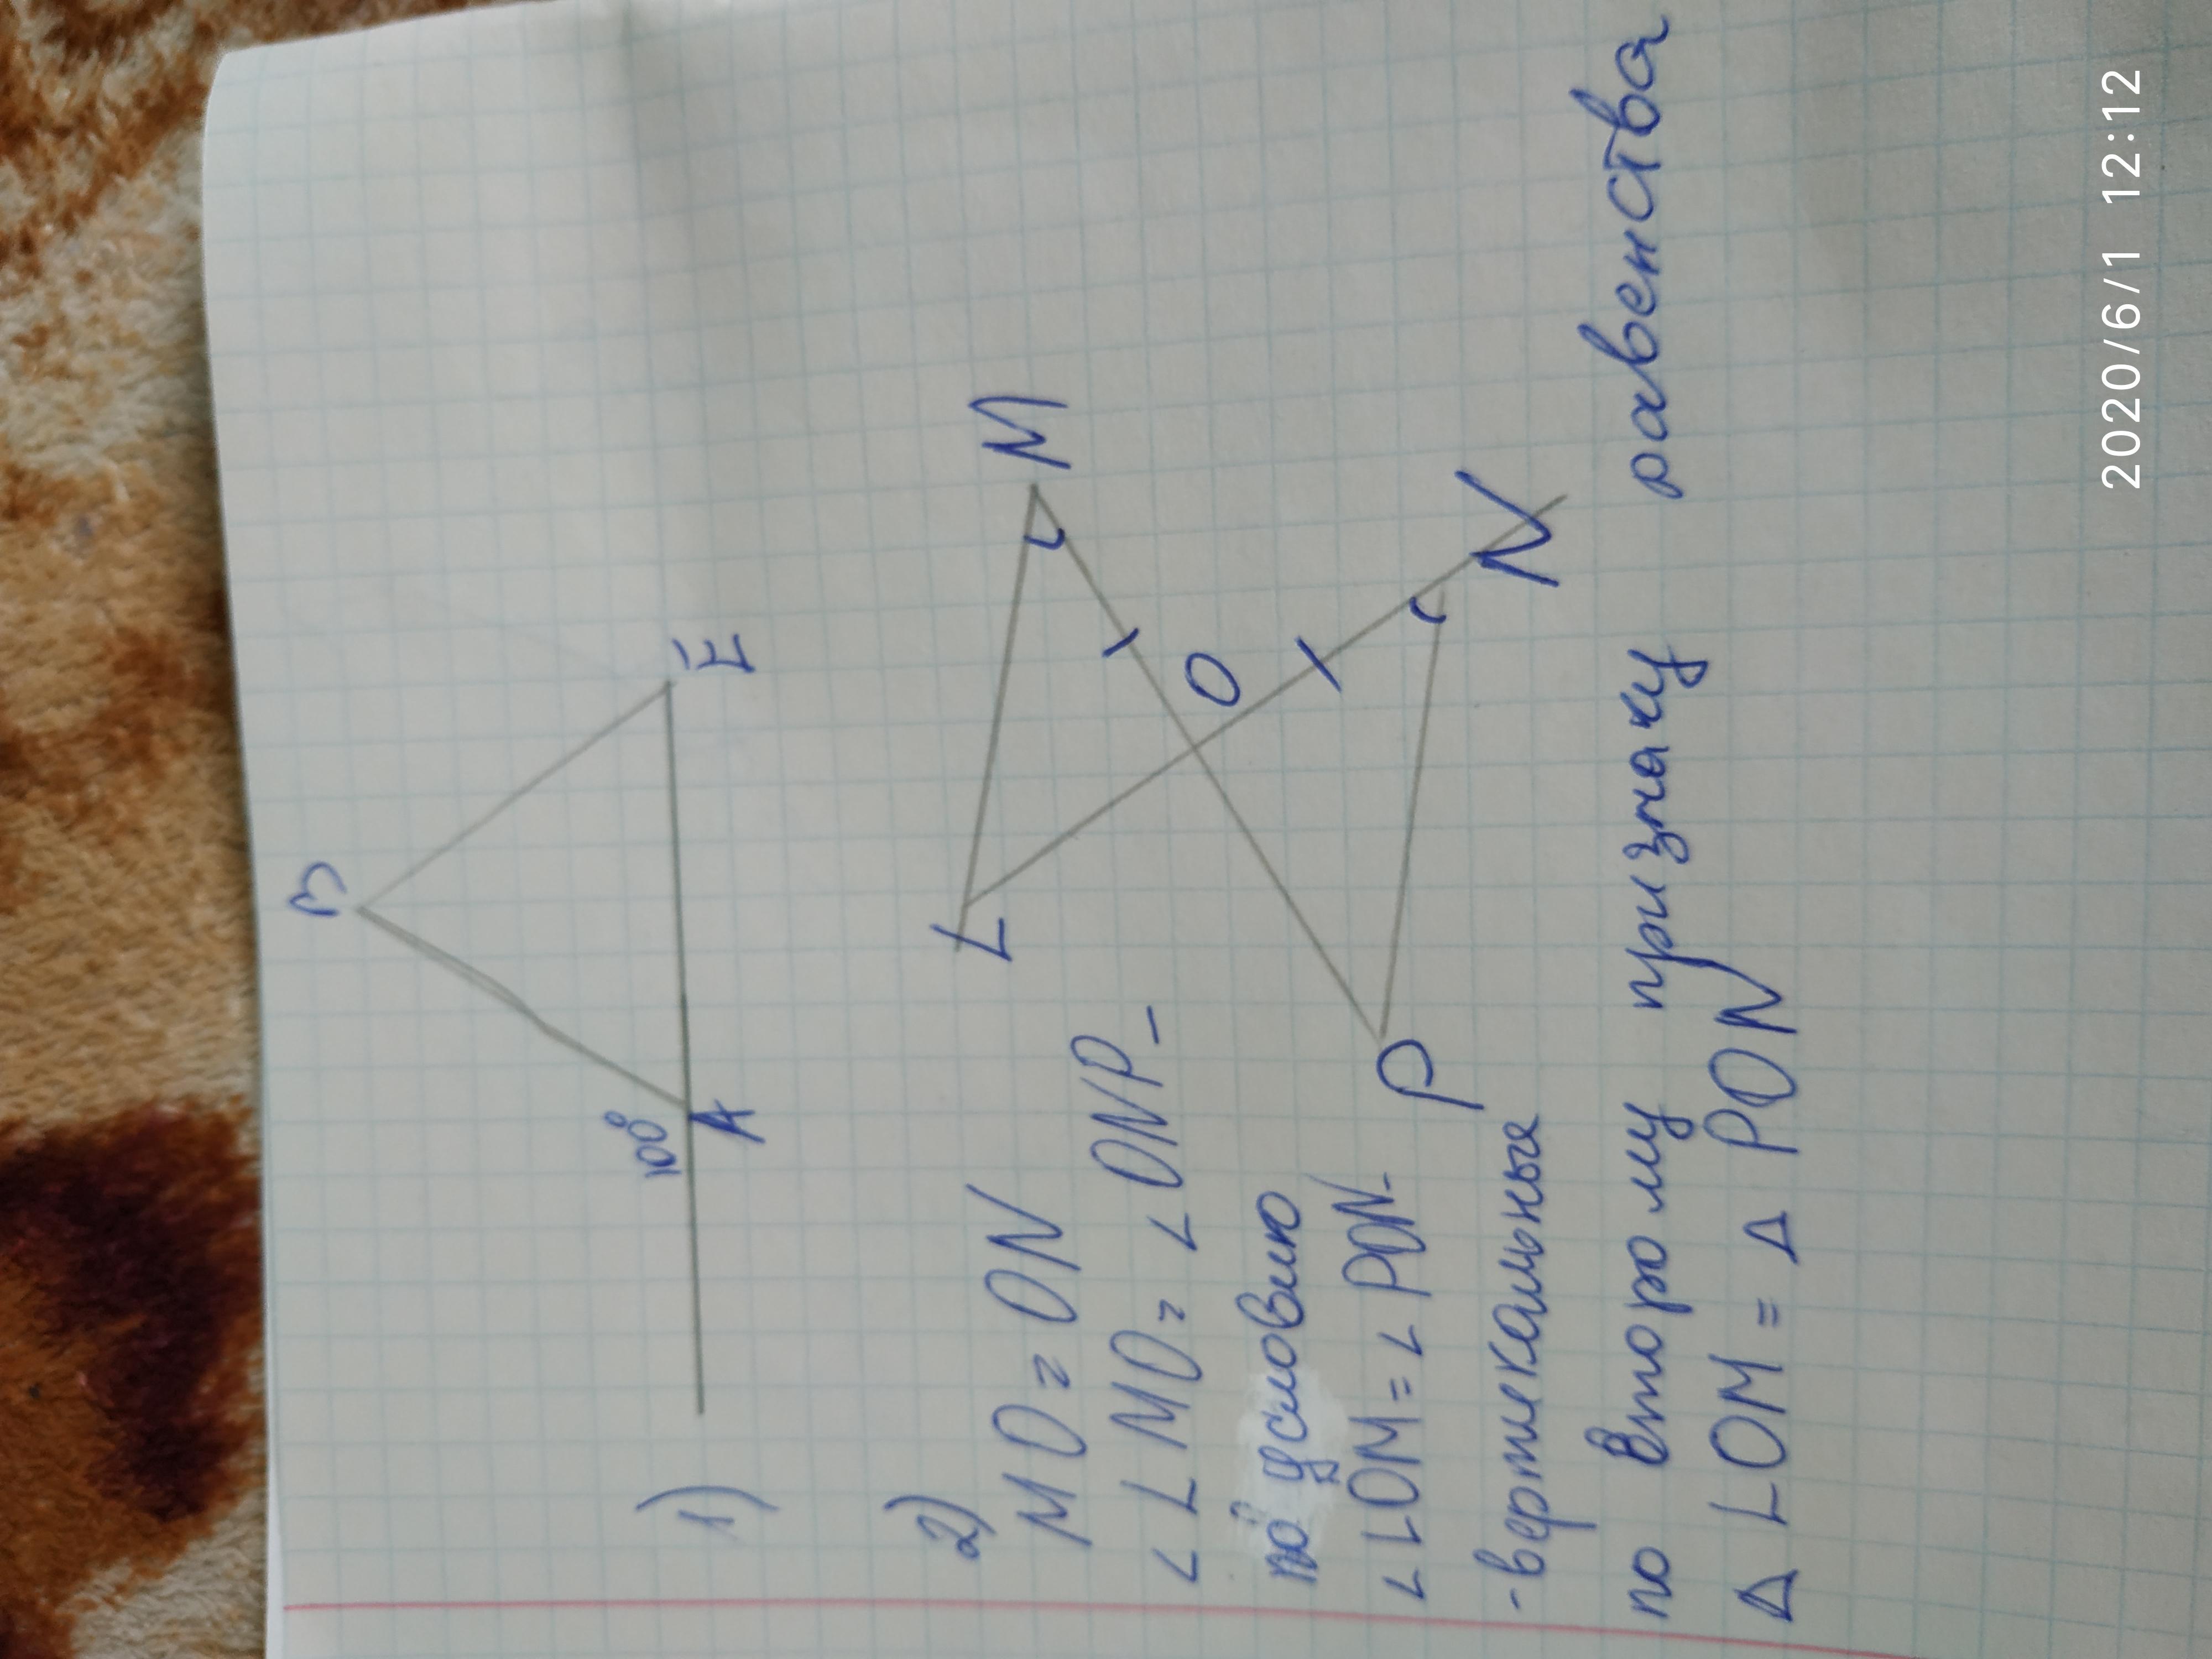 1)
В
100°
А
Е
2)
MO = ON
∠ LMO = ∠ ONP -
по условию
∠ LOM = ∠ PON -
- вертикальные
по второму признаку равенства
Δ LOM = Δ PON
L
M
O
P
N
2020/6/1 12:12